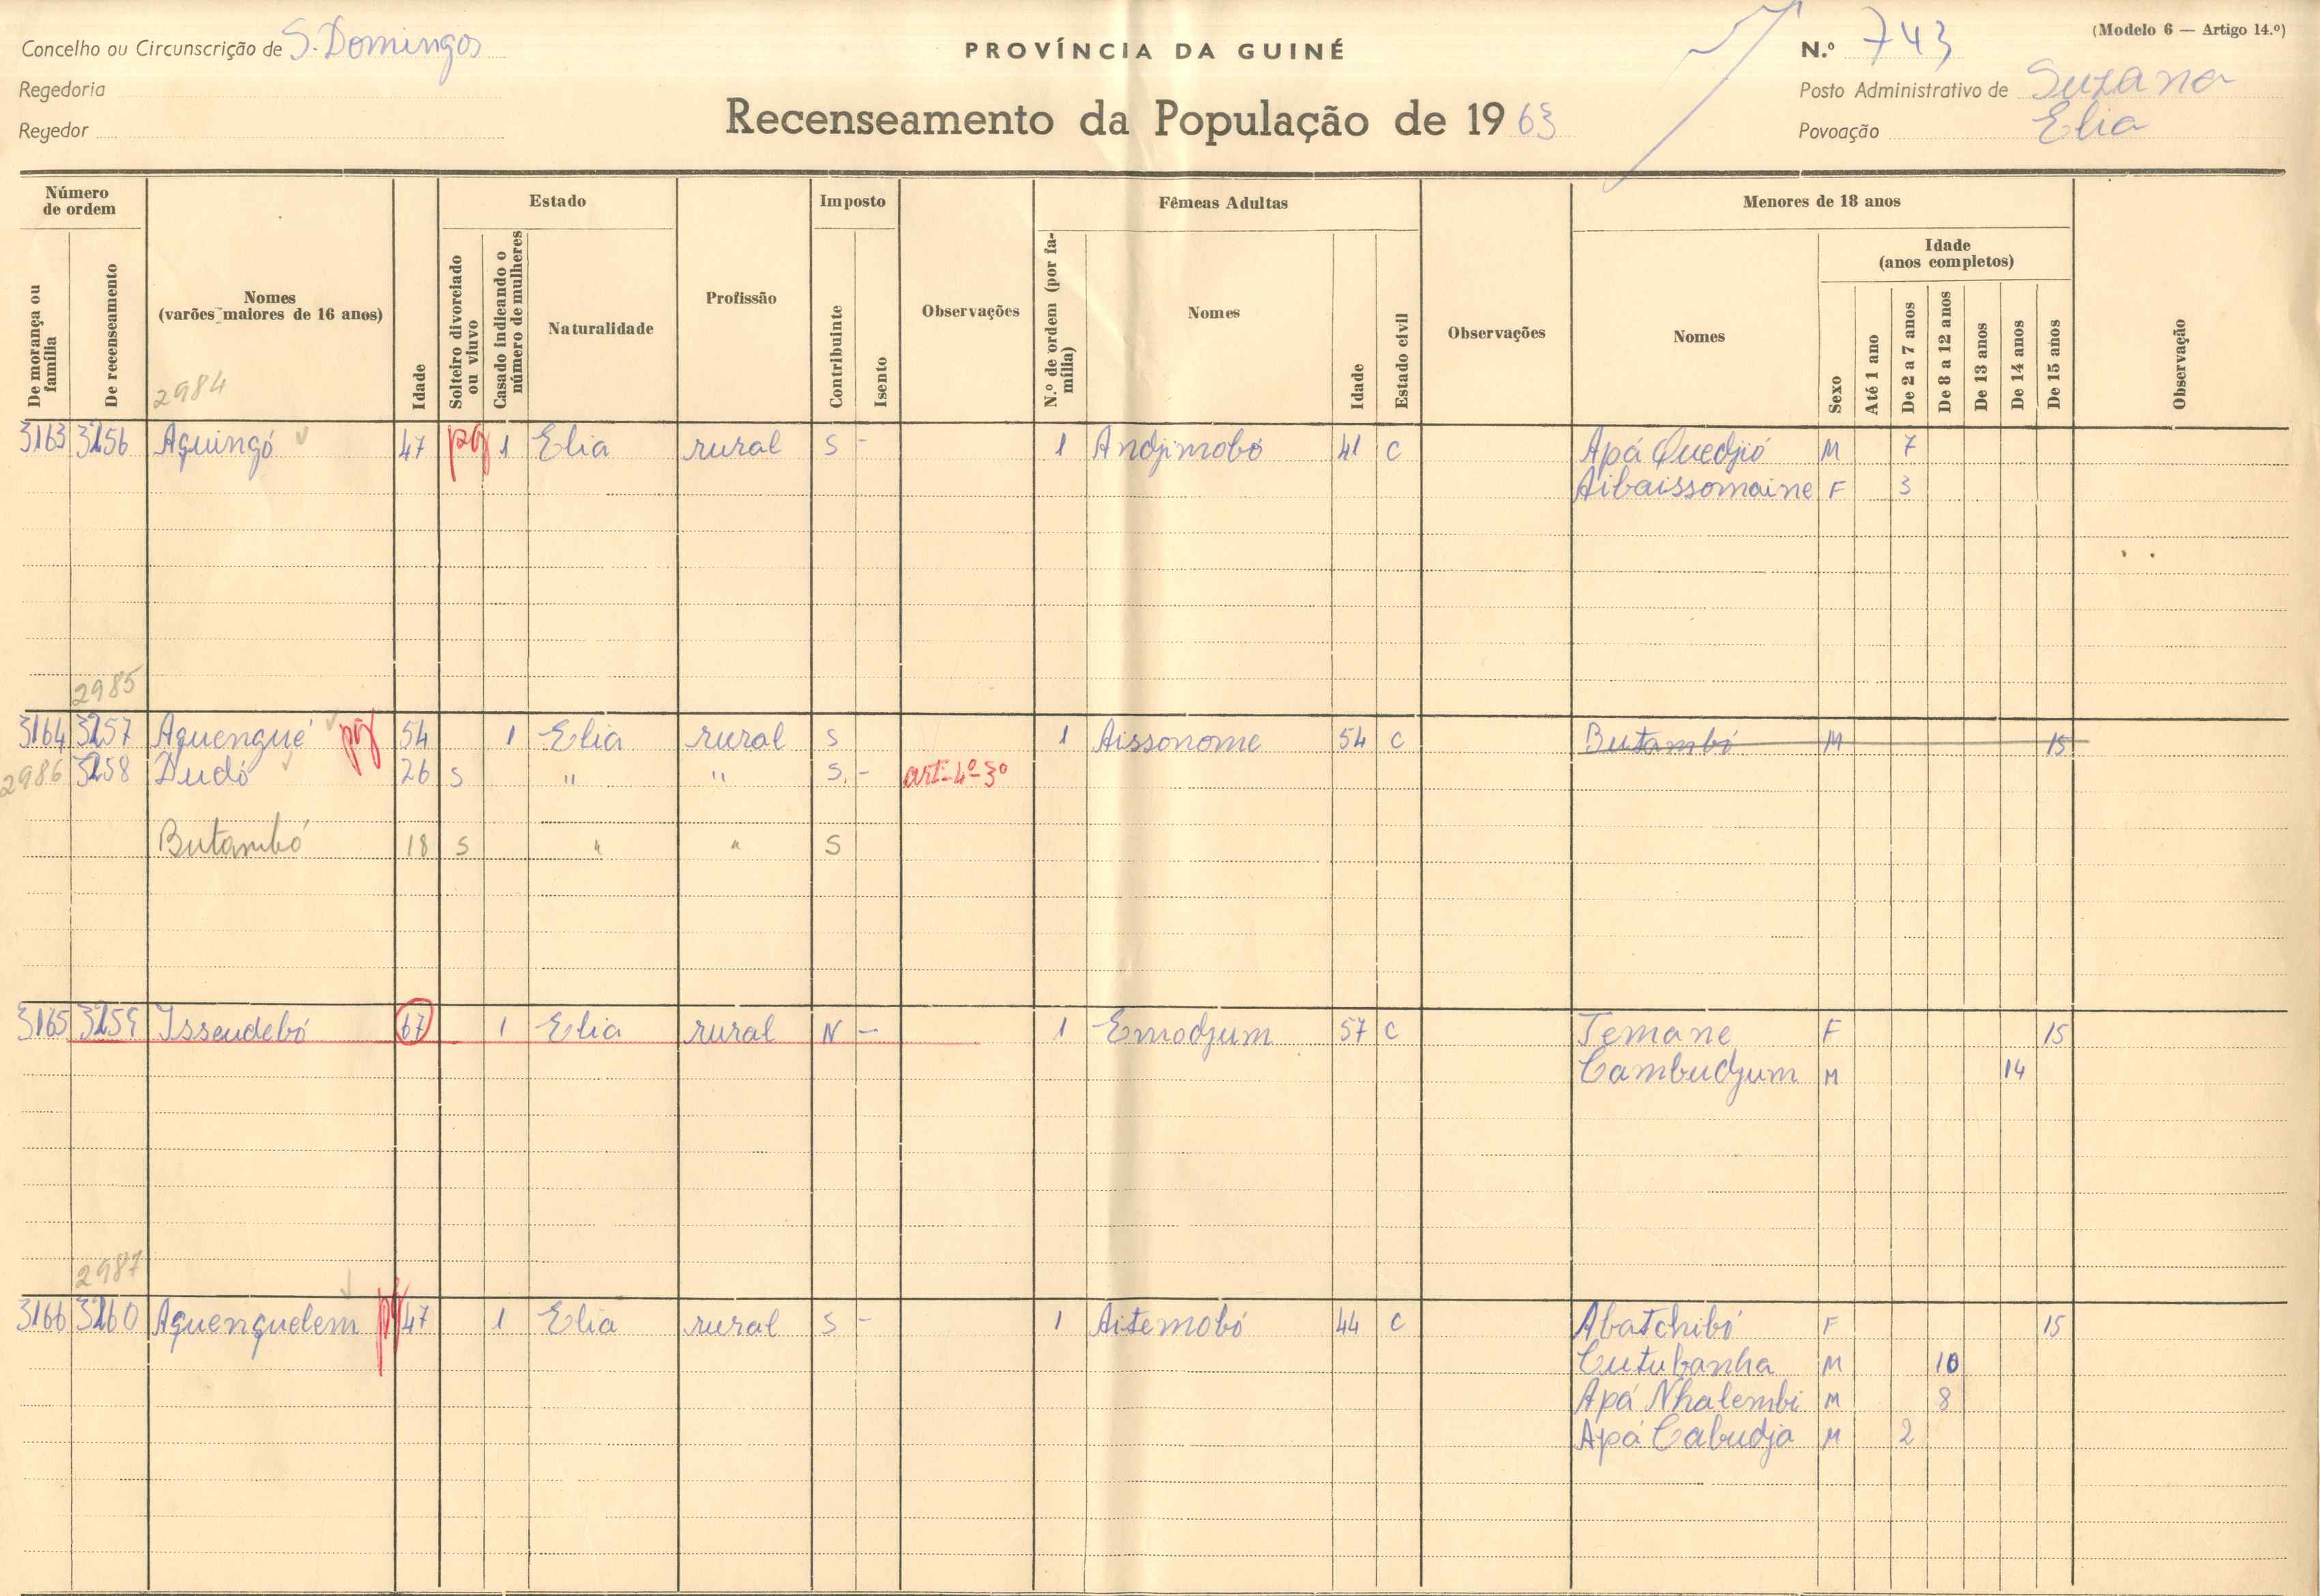 Concelho ou Circunscrição de S. Domingos
Regedoria
Regedor
PROVÍNCIA DA GUINÉ
Recenseamento da População de 1963
(Modelo 6 — Artigo 14.º)
N.º 743
Posto Administrativo de Suzana
Povoação Elia
Número de ordem
De morança ou família
De recenseamento
Nomes
(varões maiores de 16 anos)
2984
Idade
Estado
Solteiro divorciado ou viuvo
Casado indicando o número de mulheres
Naturalidade
Profissão
Imposto
Contribuinte
Isento
Observações
Fêmeas Adultas
N.º de ordem (por família)
Nomes
Idade
Estado civil
Observações
Menores de 18 anos
Nomes
Sexo
Idade
(anos completos)
Até 1 ano
De 2 a 7 anos
De 8 a 12 anos
De 13 anos
De 14 anos
De 15 anos
Observação
3163 3256 Aquingó 47 pg 1 Elia rural S - 1 Andjimobó 41 C Apá Quedjió M 7
Aibaissomaine F 3
2985
3164 3257 Aquengué pg 54 1 Elia rural S 1 Aissonome 54 C Butambó M 15
2986 3258 Dudó 26 S " " S. - art-4º-3º
Butambó 18 S " " S
3165 3259 Issendebó 67 1 Elia rural N - 1 Emodjum 57 C Temane F 15
Cambudjum M 14
2987
3166 3260 Aquenquelem pg 47 1 Elia rural S - 1 Aitemobó 44 C Abatchibó F 15
Cutubanha M 10
Apá Nhalembi M 8
Apá Cabudja M 2